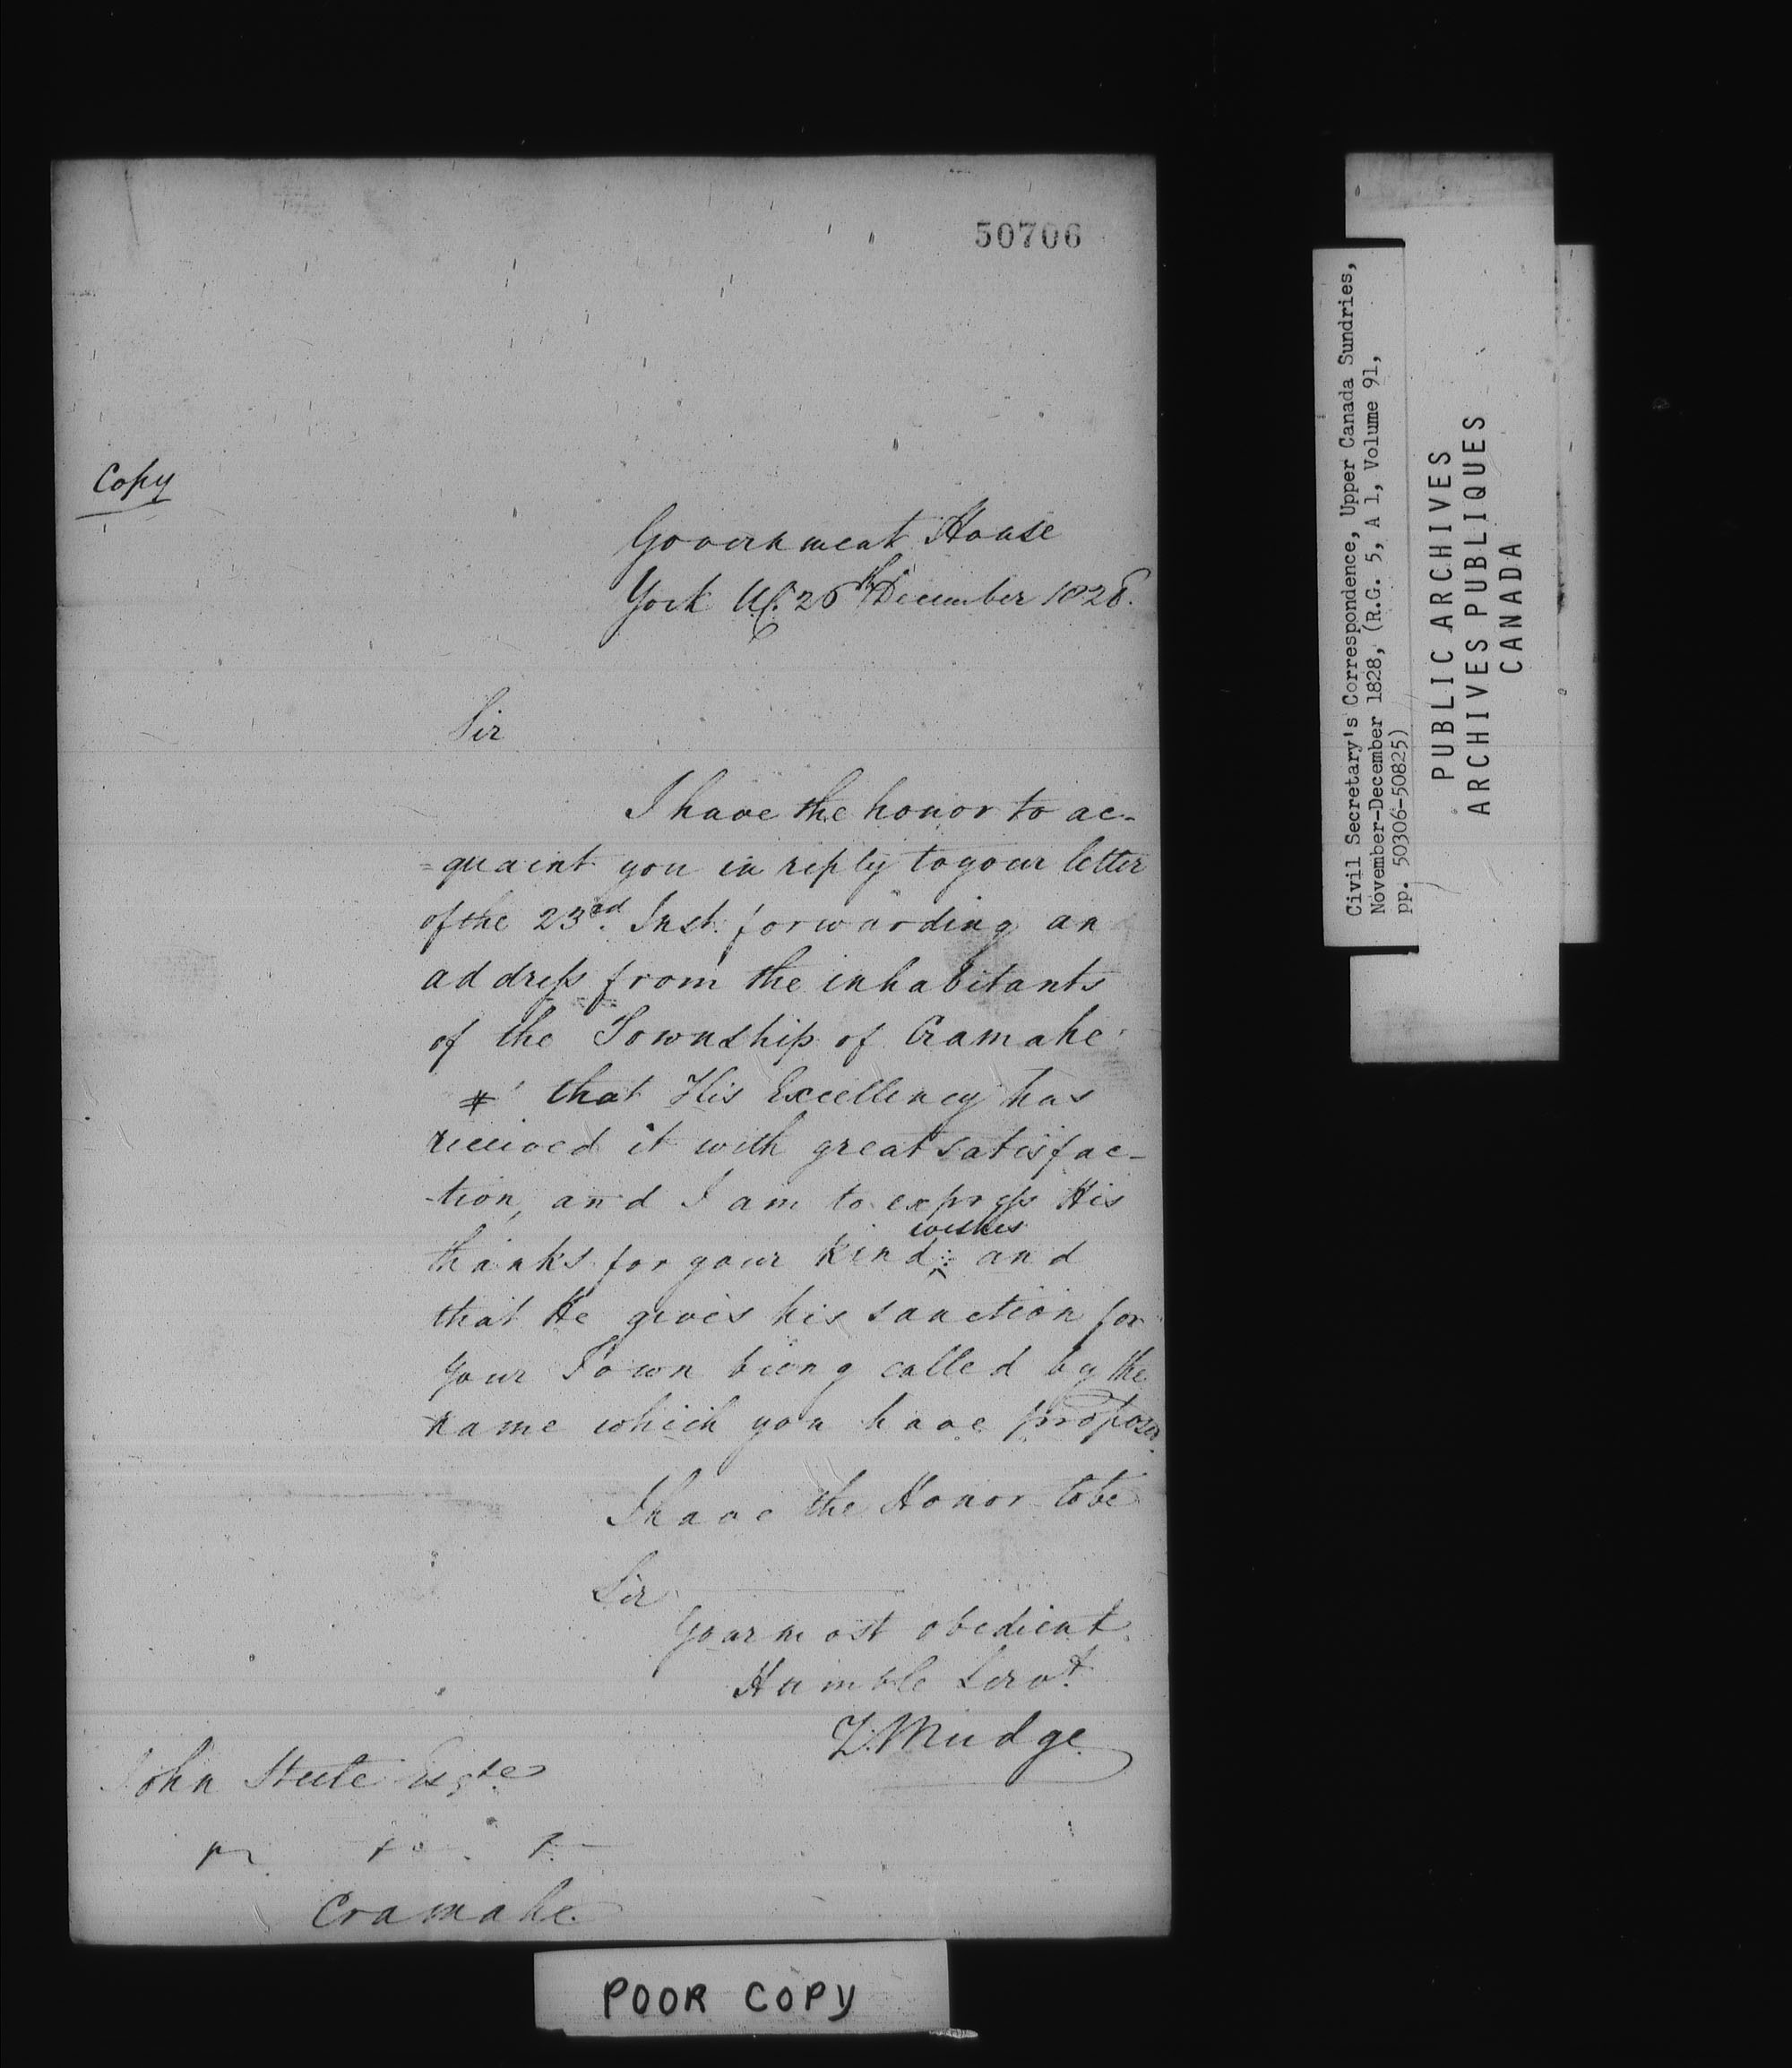 50706
Copy
Government House
York U.C. 26th December 1828.
Sir
I have the honor to ac-
=quaint you in reply to your letter
of the 23rd. Inst. forwarding an
address from the inhabitants
of the Township of Cramahe
that His Excellency has
received it with great satisfac-
-tion, and I am to express His
wishes
thanks for your kind and
that He gives his sanction for
your Town being called by the
name which you have proposed.
I have the Honor to be
Sir
Your most obedient
Humble Servt.
Z. Mudge
John Steele Esqre
Cramahe.
POOR COPY
Civil Secretary's Correspondence, Upper Canada Sundries,
November-December 1828, (R.G. 5, A 1, Volume 91,
pp. 50306-50825)
PUBLIC ARCHIVES
ARCHIVES PUBLIQUES
CANADA